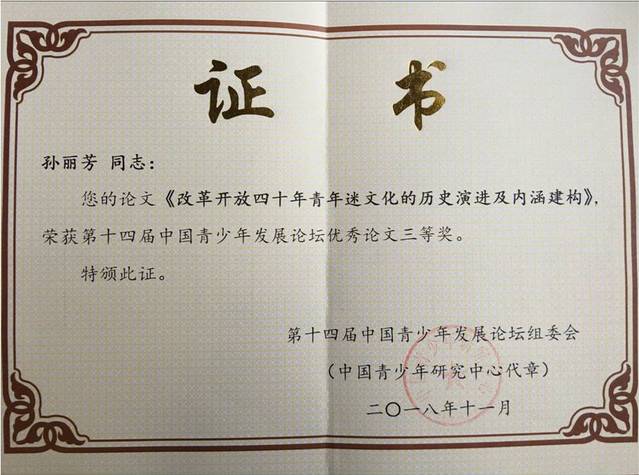 证书
孙丽芳 同志：
您的论文《改革开放四十年青年迷文化的历史演进及内涵建构》，
荣获第十四届中国青少年发展论坛优秀论文三等奖。
特颁此证。
第十四届中国青少年发展论坛组委会
（中国青少年研究中心代章）
二〇一八年十一月